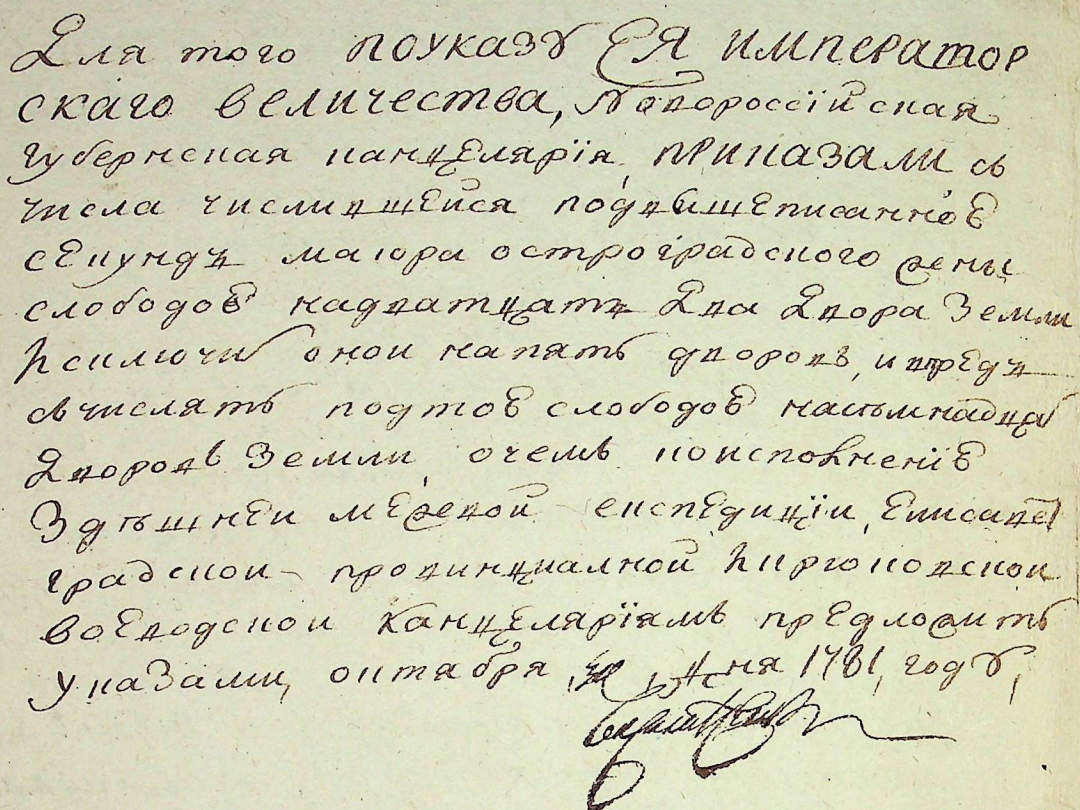 Для того поуказу ЕЯ император
скаго величества, Новороссїйская
губернская канцелярїя, приказали съ
числа числившейся подвышеписанною
секундъ маіора остроградского жены
слободою надватцать два двора земли
исключить оной на пять дворовъ, и впредь
счислять подтою слободою насемнадцать
дворовъ земли, очемъ поисполненїю
здѣшней межевой експедицїи, Елисавет
градской провинциалной Киргоковской
воеводской канцелярїямъ предложить
указами, октября дня 1781, году,